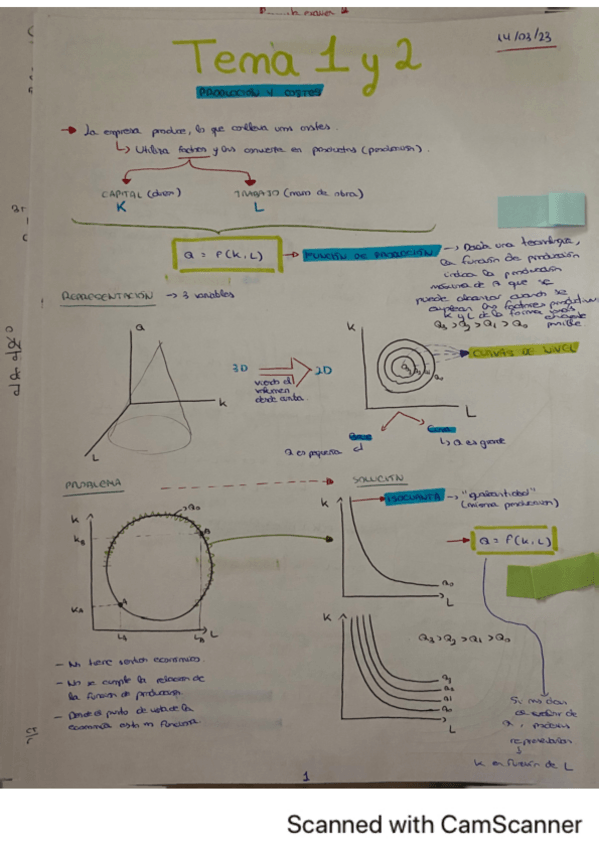 14/03/23
Tema 1 y 2
PRODUCCIÓN Y COSTES
La empresa produce, lo que conlleva unos costes.
Utiliza factores y los convierte en productos (producción).
CAPITAL (dinero) TRABAJO (mano de obra)
K L
Q = f(K,L) → FUNCIÓN DE PRODUCCIÓN → Dada una tecnología,
la función de producción
indica la producción
máxima de Q que se
puede alcanzar cuando se
emplean los factores productivos
K y L de la forma más
eficiente
posible.
Q3 > Q2 > Q1 > Q0
REPRESENTACIÓN → 3 variables
Q
K
L
3D 2D
viendo el
volumen
desde arriba
K
L
Q0
CURVAS DE NIVEL
Base
Q es pequeña
Cima
Q es grande
PROBLEMA
SOLUCIÓN
K
Q0
KB
B
KA
A
LA LB L
K
ISOCUANTA → "igual cantidad"
(misma producción)
Q = f(K,L)
Q0
L
K
Q3 > Q2 > Q1 > Q0
Q3
Q2
Q1
Q0
L
- No tiene sentido económico.
- No se cumple la relación de
la función de producción.
- Desde el punto de vista de la
economía esto no funciona.
Si nos dan
el valor de
Q, podemos
representar
K en función de L
1
Scanned with CamScanner